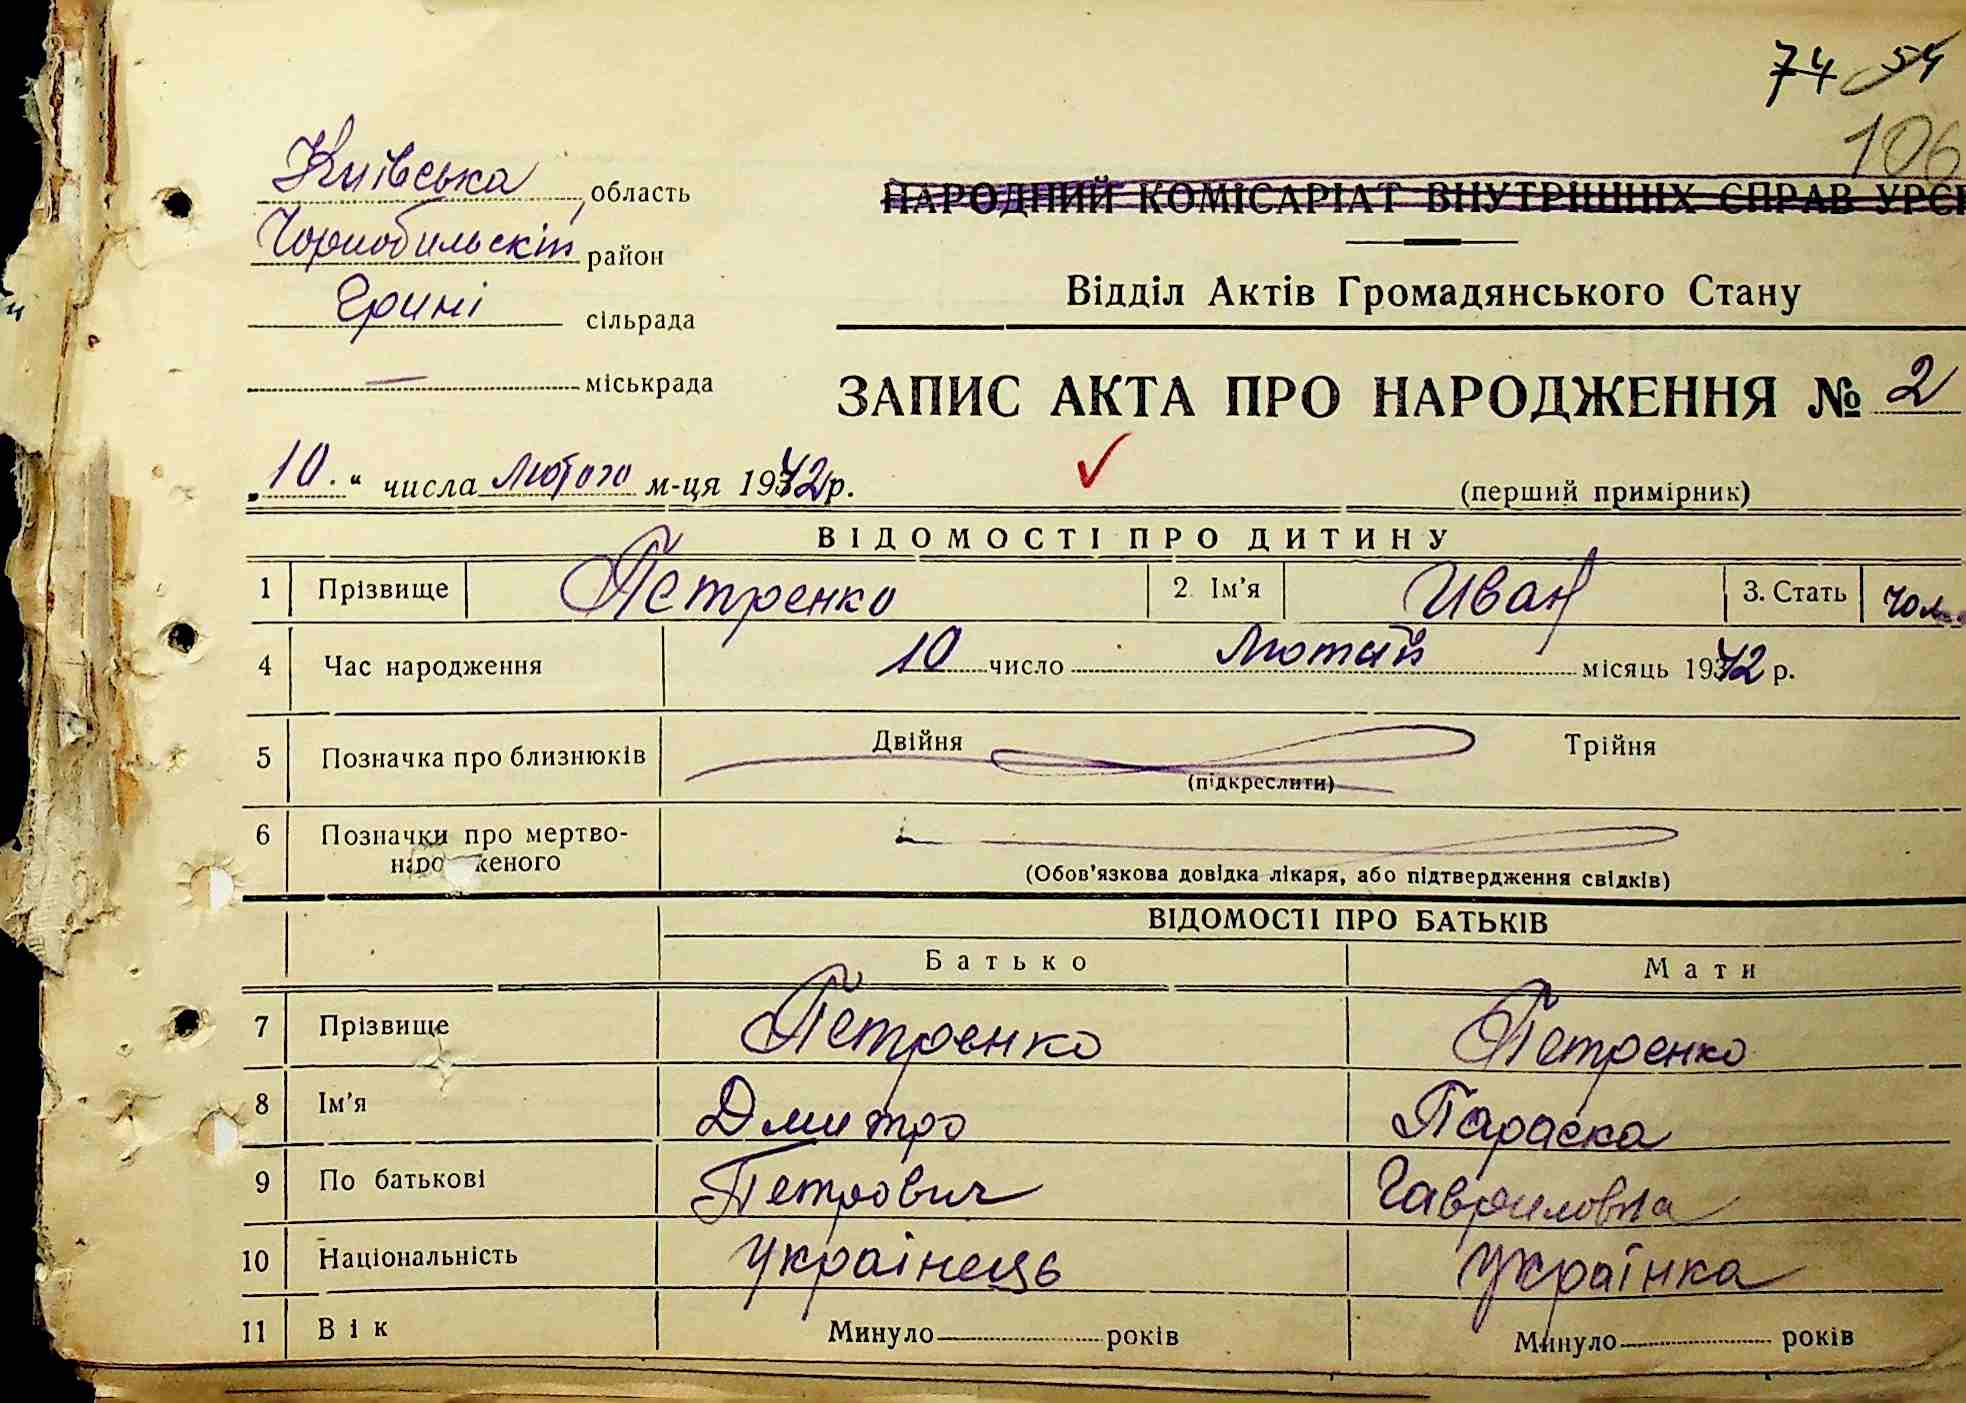 74 54
106
Київська область
НАРОДНИЙ КОМІСАРІАТ ВНУТРІШНІХ СПРАВ УРСР
Чорнобильскій район
Відділ Актів Громадянського Стану
сільрада
— міськрада
ЗАПИС АКТА ПРО НАРОДЖЕННЯ № 2
„10.“ числа лютого м-ця 1942р.
(перший примірник)
ВІДОМОСТІ ПРО ДИТИНУ
1 Прізвище Петренко 2. Ім'я Иван 3. Стать чол.
4 Час народження 10 число Лютий місяць 1942 р.
5 Позначка про близнюків Двійня Трійня
(підкреслити)
6 Позначки про мертво-
народженого (Обов'язкова довідка лікаря, або підтвердження свідків)
ВІДОМОСТІ ПРО БАТЬКІВ
Батько Мати
7 Прізвище Петренко Петренко
8 Ім'я Дмитро Параска
9 По батькові Петрович Гавриловна
10 Національність українець українка
11 Вік Минуло років Минуло років